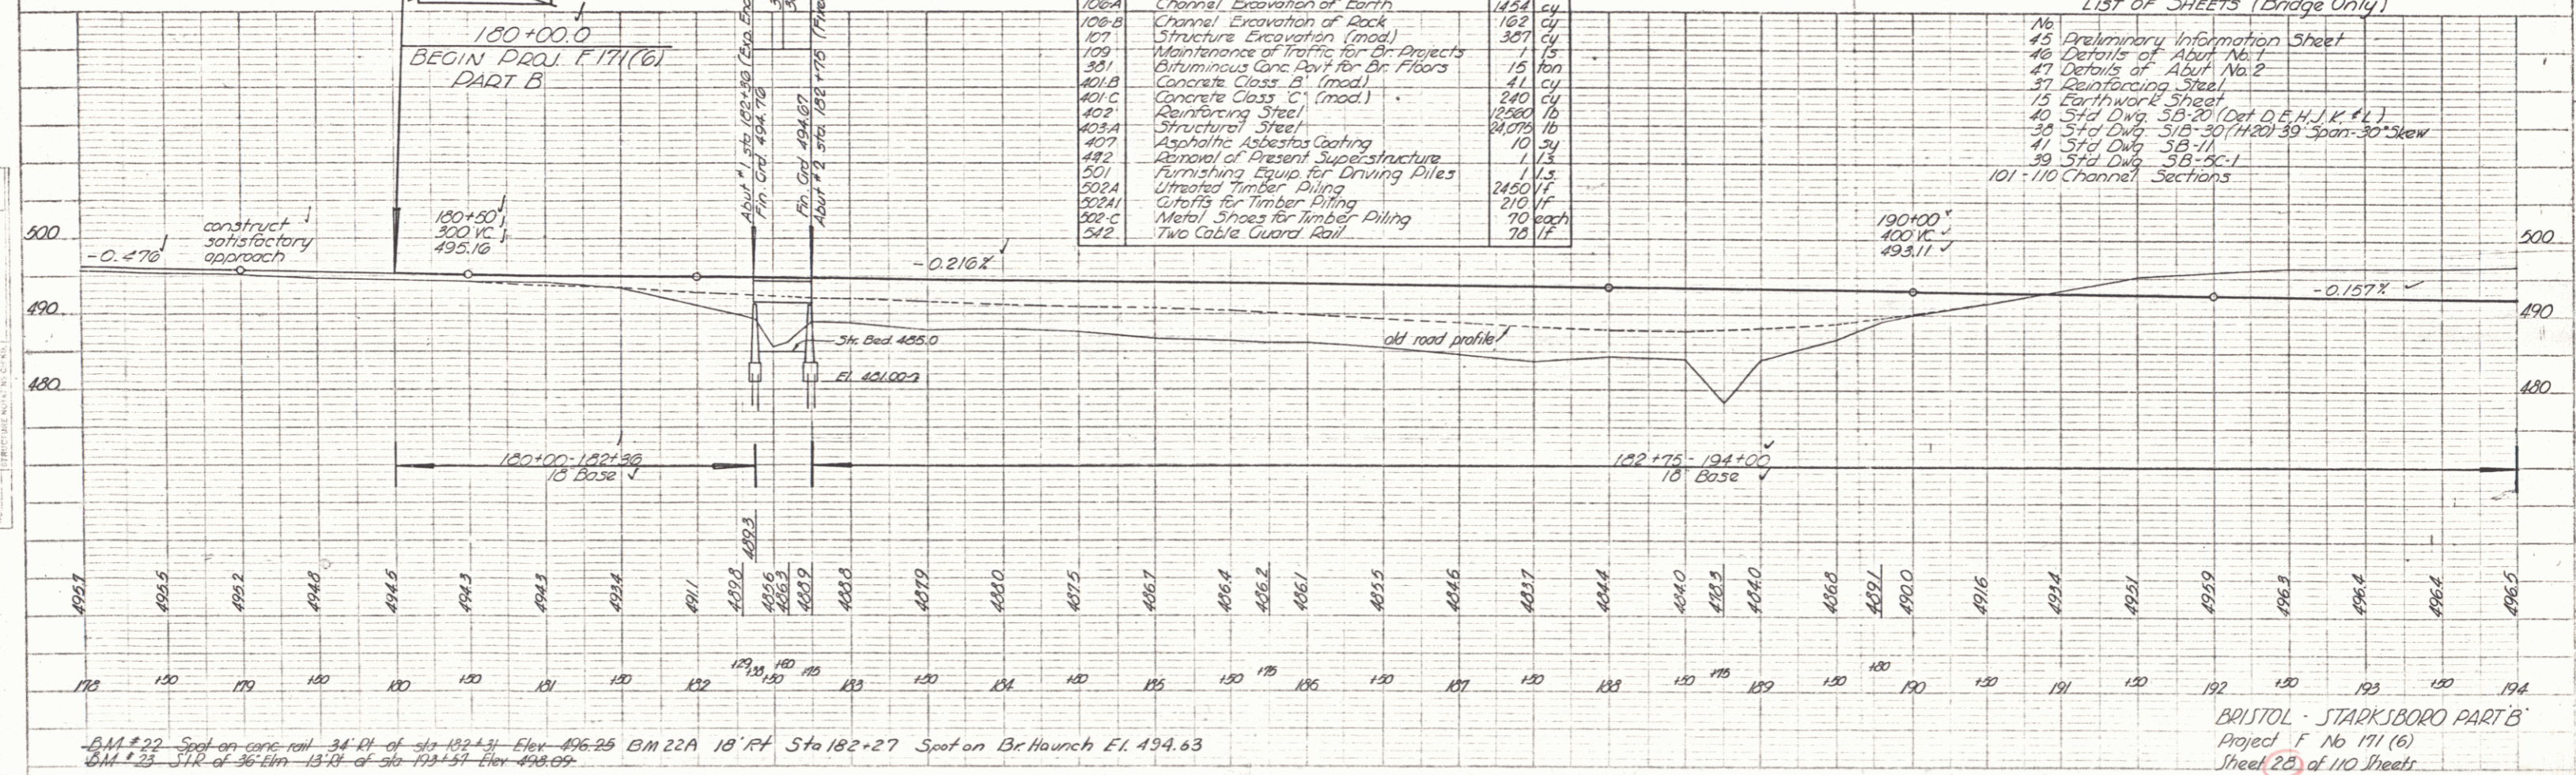 180+00.0
BEGIN PROJ. F 171(6)
PART B
Abut #1 sta 182+36 (Exp. End
Fin. Grd. 494.76
Fin. Grd. 494.67
Abut #2 sta. 182+75
106-A Channel Excavation of Earth 1454 cy
106-B Channel Excavation of Rock 162 cy
107 Structure Excavation (mod.) 387 cy
109 Maintenance of Traffic for Br. Projects 1 ls
381 Bituminous Conc. Pav't for Br. Floors 15 ton
401-B Concrete Class 'B' (mod.) 41 cy
401-C Concrete Class 'C' (mod.) 240 cy
402 Reinforcing Steel 12560 lb
403-A Structural Steel 24,075 lb
407 Asphaltic Asbestos Coating 10 sy
492 Removal of Present Superstructure 1 l.s.
501 Furnishing Equip. for Driving Piles 1 l.s.
502A Utreated Timber Piling 2450 lf
502A1 Cutoffs for Timber Piling 210 lf
502-C Metal Shoes for Timber Piling 70 each
542 Two Cable Guard Rail 78 lf
LIST OF SHEETS (Bridge Only)
No.
45 Preliminary Information Sheet
46 Details of Abut No. 1
47 Details of Abut No. 2
37 Reinforcing Steel
15 Earthwork Sheet
40 Std Dwg. SB-20 (Det D, E, H, J, K, & L)
38 Std Dwg. SIB-30 (H-20) 39' Span-30° Skew
41 Std Dwg SB-11
39 Std Dwg SB-5C-1
101-110 Channel Sections
500
-0.476
construct
satisfactory
approach
180+50
300 VC
495.16
-0.216%
190+00
400 VC
493.11
500
-0.157%
490
490
Str. Bed 485.0
old road profile
El. 481.00
480
480
180+00-182+36
18" Base
182+75 - 194+00
18" Base
489.3
495.7 495.5 495.2 494.8 494.5 494.3 494.3 493.4 491.1 489.8 485.6 486.3 488.9 488.8 487.9 488.0 487.5 486.7 486.4 486.2 486.1 485.5 484.6 483.7 484.4 484.0 478.3 484.0 486.8 489.1 490.0 491.6 493.4 495.1 495.9 496.3 496.4 496.4 496.5
+29 +38 +60 +75 +75 +75 +80
178 +50 179 +50 180 +50 181 +50 182 +50 183 +50 184 +50 185 +50 186 +50 187 +50 188 +50 189 +50 190 +50 191 +50 192 +50 193 +50 194
BM #22 Spot on conc rail 34' Rt of sta 182+31 Elev 496.25 BM 22A 18' Rt Sta 182+27 Spot on Br. Haunch El. 494.63
BM #23 SIR of 36" Elm 13' Rt of sta 193+57 Elev 498.09
BRISTOL - STARKSBORO PART 'B'
Project F No 171 (6)
Sheet 28 of 110 Sheets